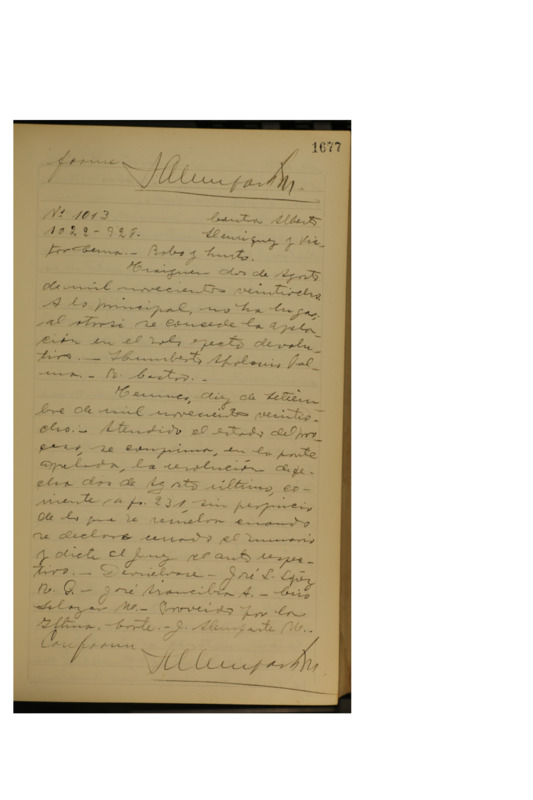 1677
forme
J Alemparte M.
Nº 1013 Contra Alberto
1022-928. Henriquez y Vic-
tor Cerna.- Robo y hurto.
Traiguen dos de Agosto
de mil novecientos veintiocho
A lo principal, no ha lugar,
al otrosi se concede la apela-
ción en el solo efecto devolu-
tivo.- Humberto Apolonio Pal-
ma.- R. Castro.-
Temuco, diez de setiem-
bre de mil novecientos veintio-
cho.- Atendido el estado del pro-
ceso, se confirma, en la parte
apelada, la resolución de fe-
cha dos de Agosto último, co-
rriente a fs. 231, sin perjuicio
de lo que se resuelva cuando
se declare cerrado el sumario
y dicte el Juez el auto respec-
tivo.- Devuélvase.- José L. López
R. Q.- José Arancibia A.-
Salazar M.- Proveido por la
Iltma. Corte.- J. Alemparte M.-
Conforme
J Alemparte M.